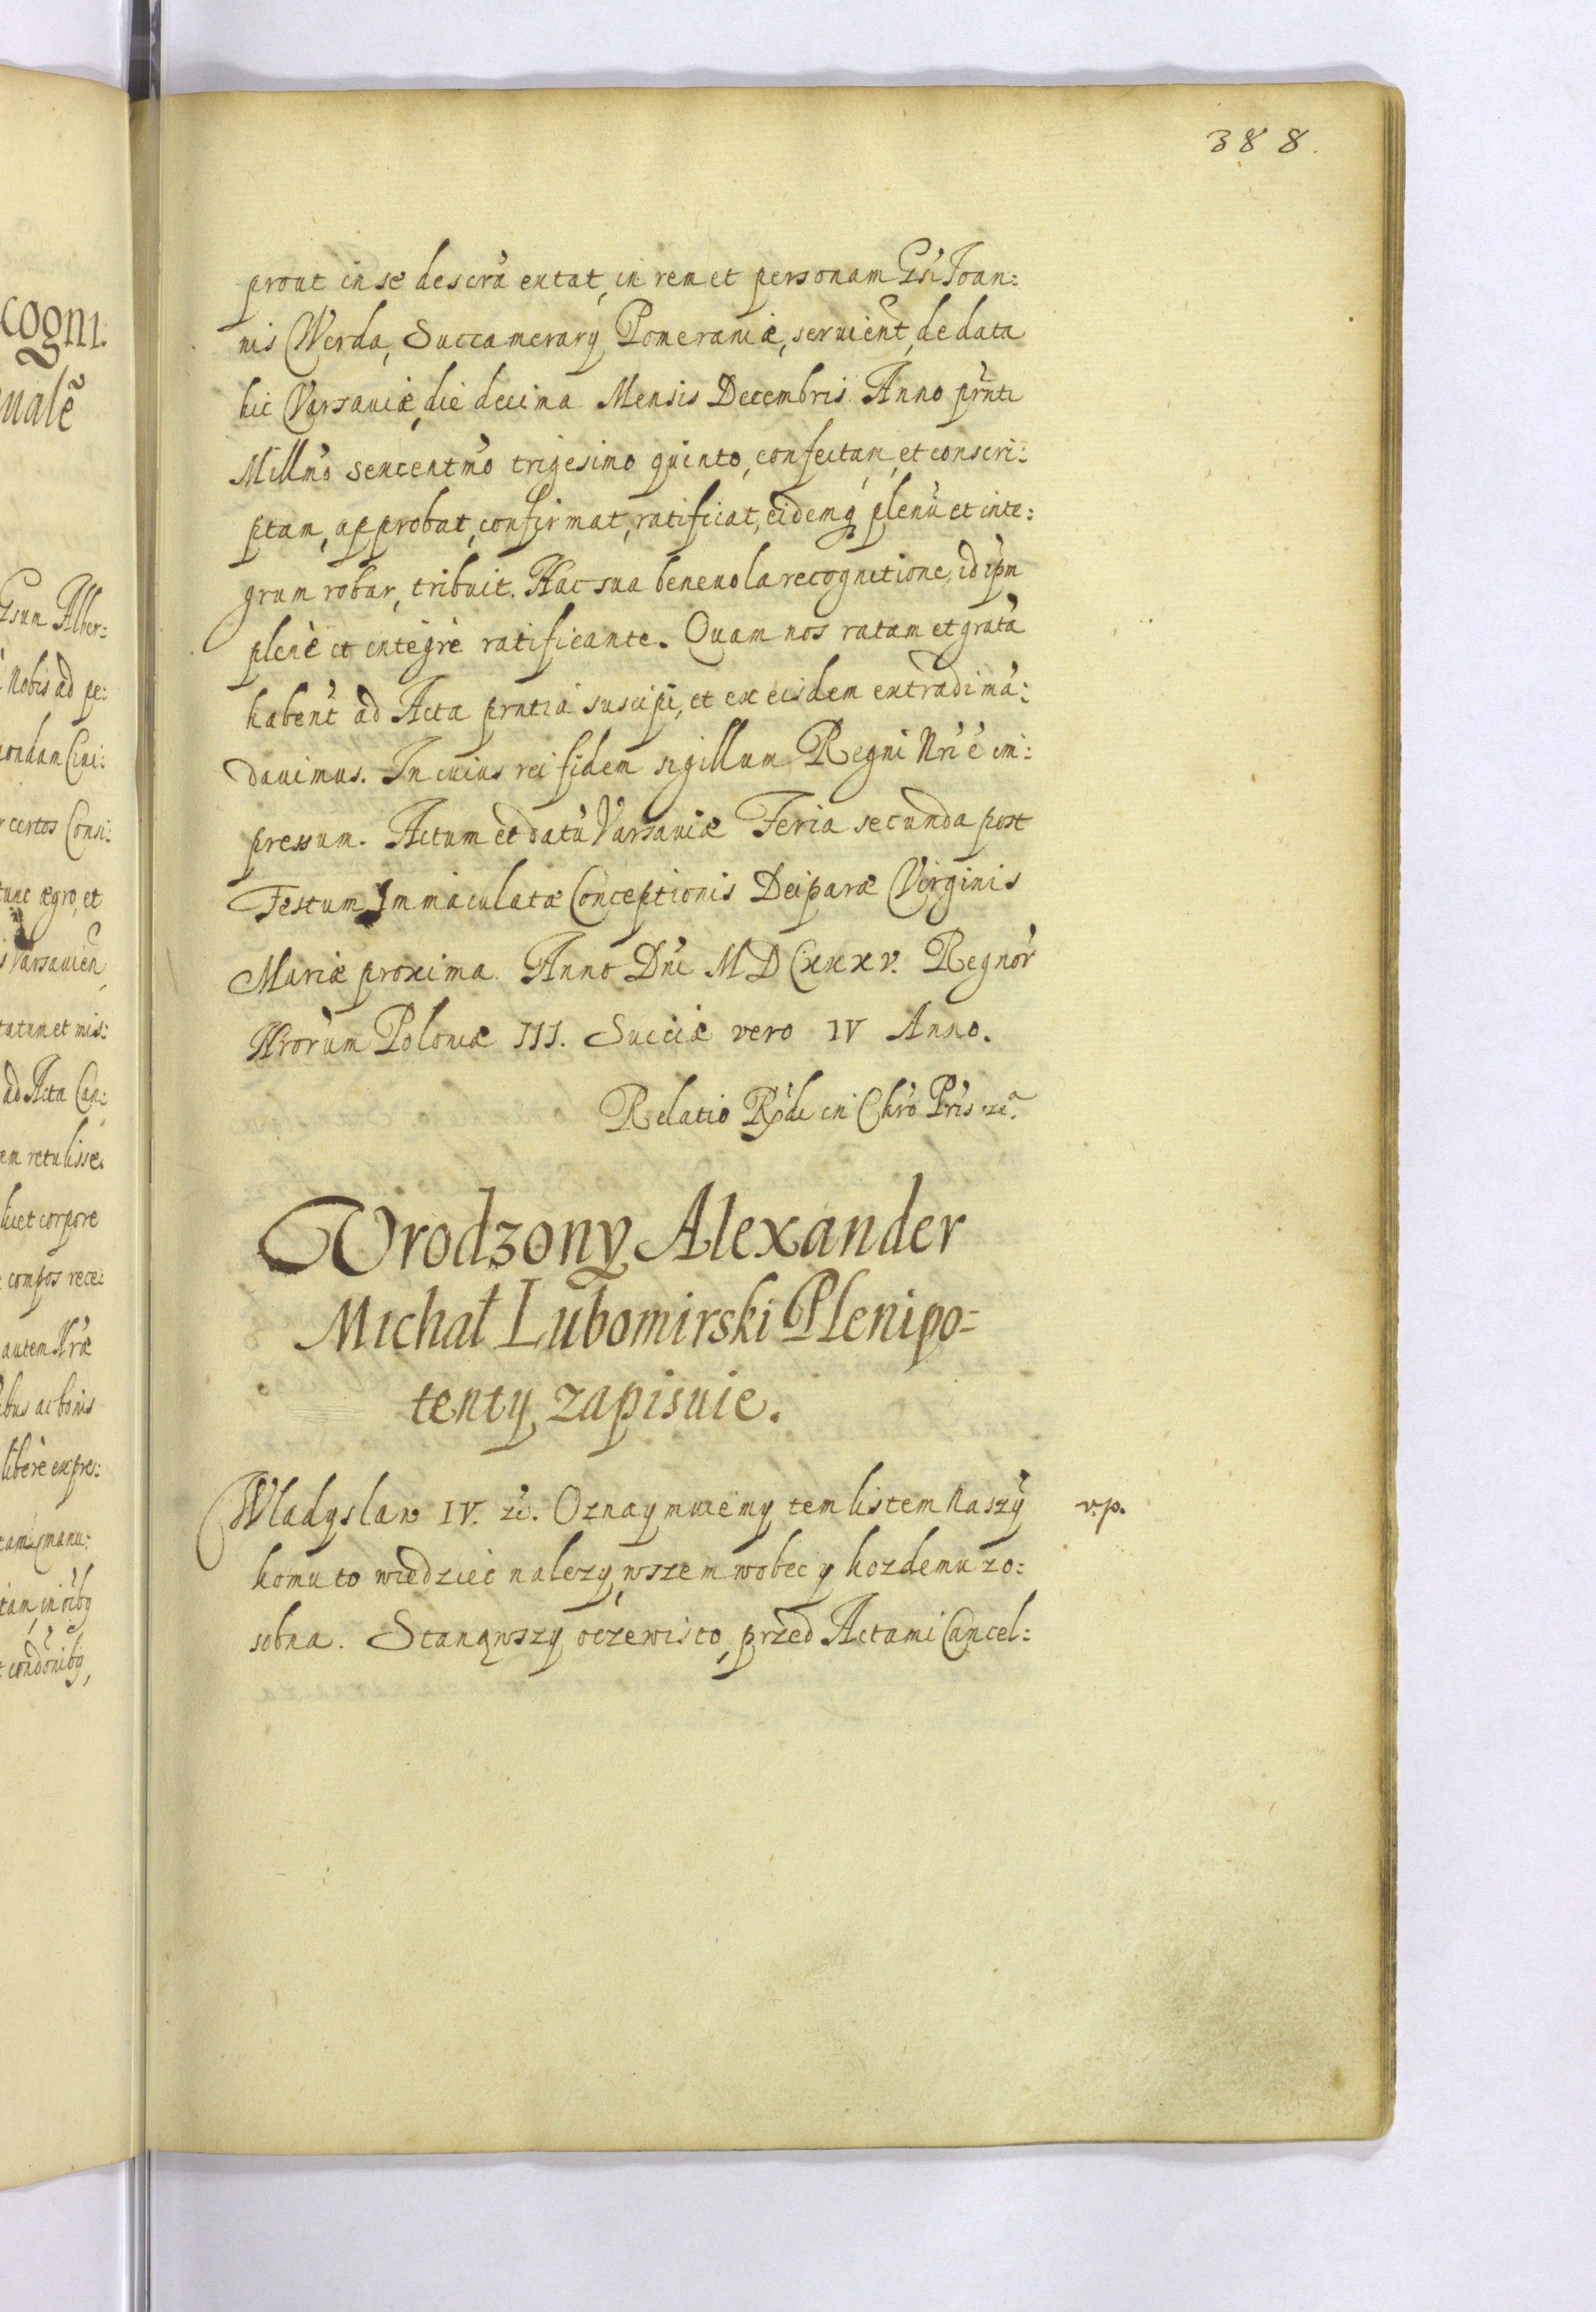 388.
prout in se descrũ extat, in rem et personam Gsi Ioan:
nis Werda, Succamerarÿ Pomeraniæ, seruient, de data
hic Varsauiæ, die decima Mensis Decembris Anno prnti
Millmo sexcentmo trigesimo quinto, confectam, et conscri:
ptam, approbat, confirmat, ratificat, eidemq plenũ et inte:
grum robur, tribuit. Hac sua beneuola recognitione, id ipm
plenè et integrè ratificante. Quam nos ratam et gratã
habent ad Acta prntia suscipi, et ex eisdem extradi mã:
dauimus. In cuius rei fidem sigillum Regni Nri è im:
pressum. Actum et datũ Varsauiæ Feria secunda post
Festum Immaculatæ Conceptionis Deiparæ Virginis
Mariæ proxima. Anno Dni MDCxxxv. Regnor
Nrorum Poloniæ III. Sueciæ vero IV Anno.
Relatio Rndi in Chro Pris zcª
Vrodzony Alexander
Michał Lubomirski Plenipo=
tenty zapisuie.
Władysław IV. zc. Oznaymuiemy tem listem Naszÿ
v.p.
komu to wiedzieć nalezy, wszem wobec y kozdemu zo:
sobna. Stanąwszy oczewisto, przed Actami Cancel:
cogni.
nalẽ
Gsum Alber:
Nobis ad pe:
certos Consi:
tunc ægro, et
Varsauien
tatum et mis:
ad Acta Can:
em retulisse.
licet corpore
compos rece:
autem Nræ
ibus ac bonis
liberè expres:
manu: